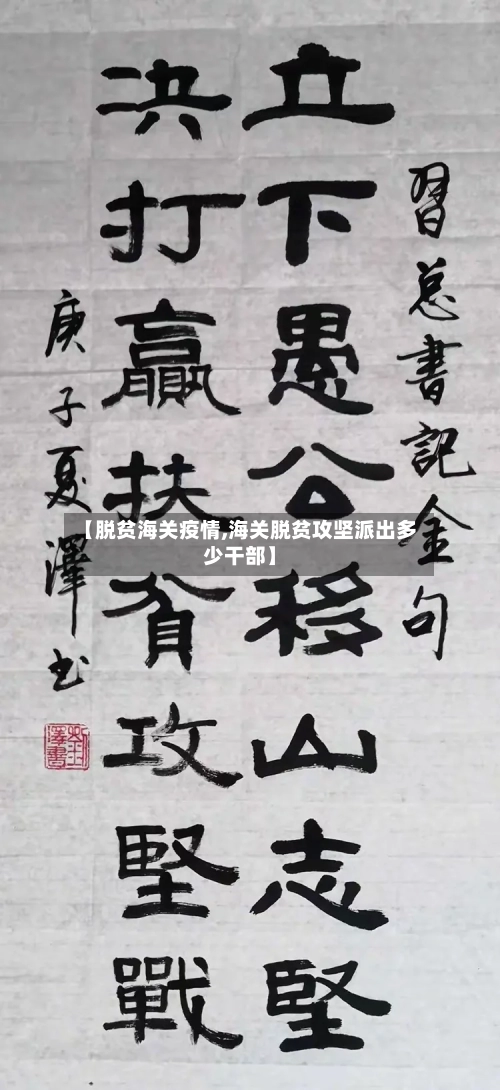 習总書記金句
立下愚公移山志堅
决打贏扶貧攻堅戰
庚子夏澤书
【脱贫海关疫情,海关脱贫攻坚派出多
少干部】